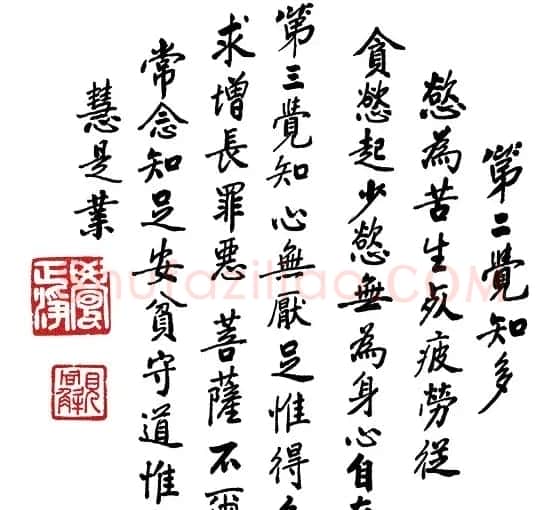 第二覺知多
慾為苦生死疲勞從
貪慾起少慾無為身心自在
第三覺知心無厭足惟得
求增長罪惡菩薩不爾
常念知足安貧守道惟
慧是業
hufaziliao.COM